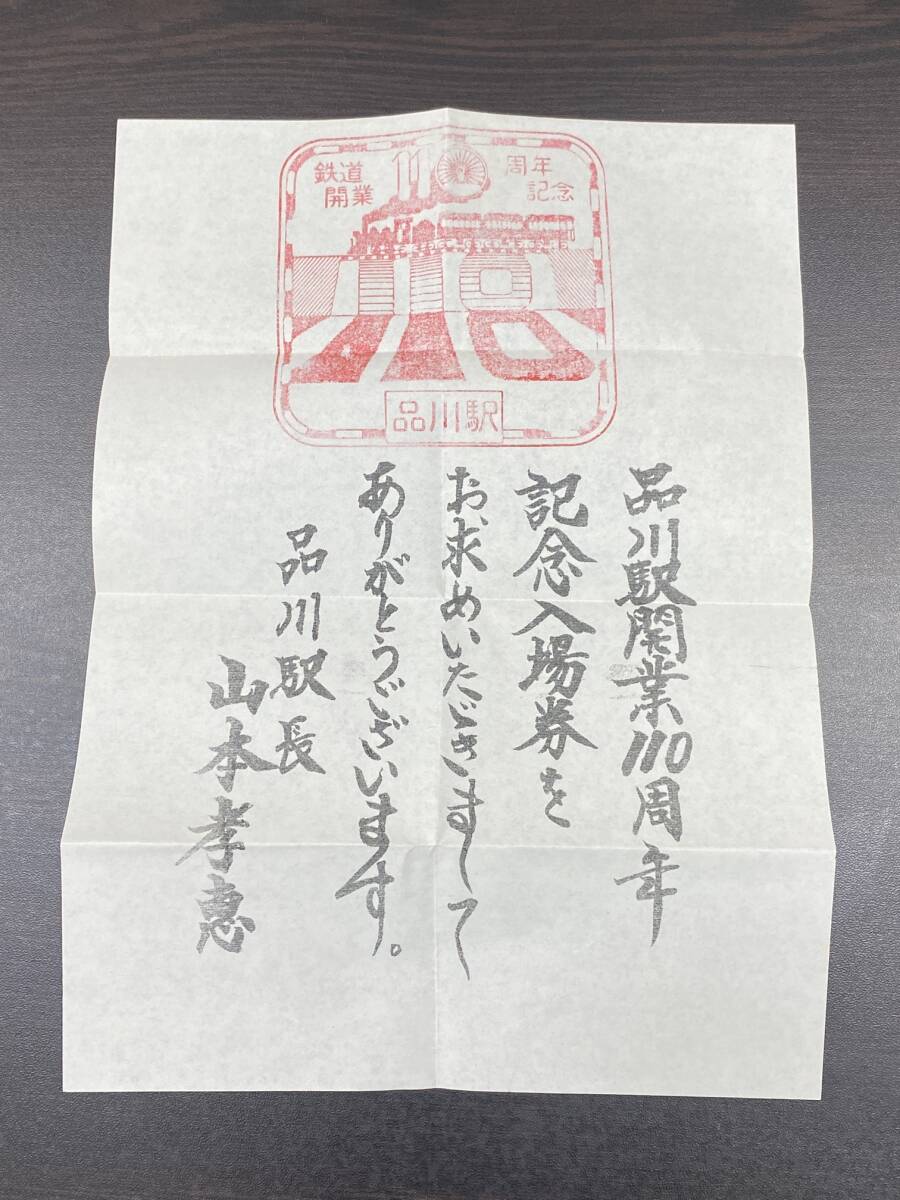 鉄道
開業
110
周年
記念
品川駅
品川駅開業110周年
記念入場券を
お求めいただきまして
ありがとうございます。
品川駅長
山本孝恵